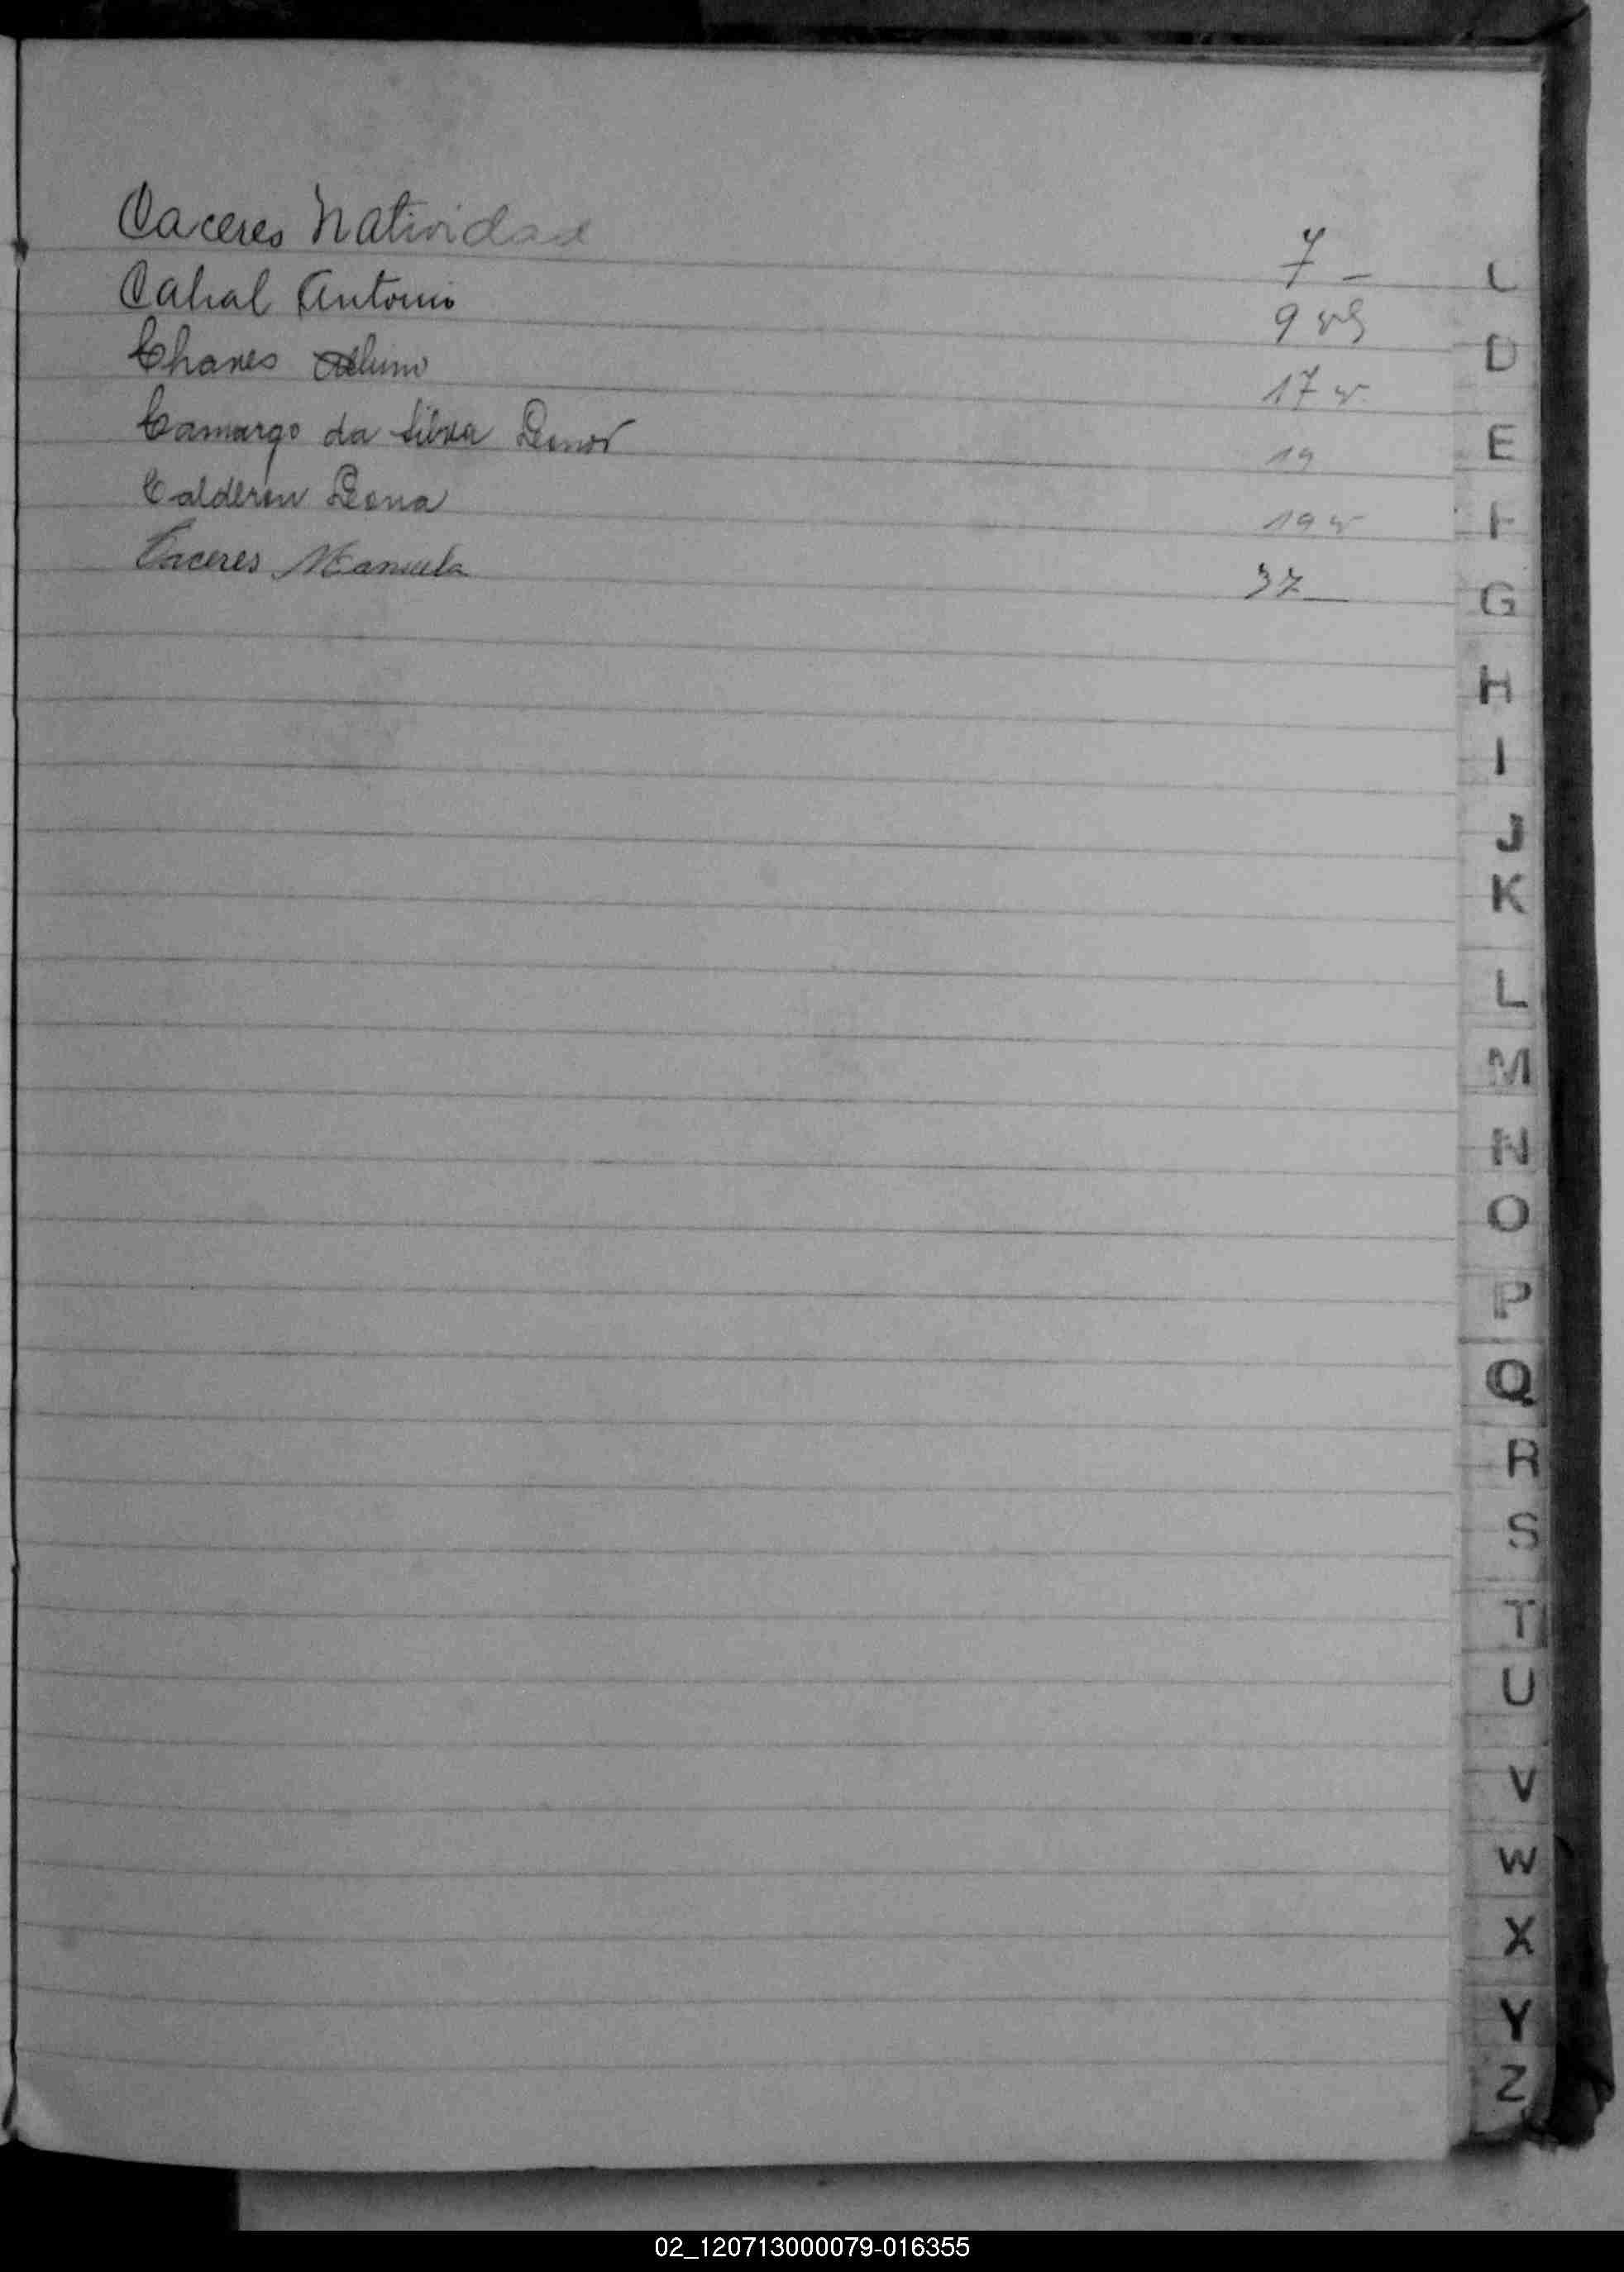 Caceres Natividad 7 –
Cabral Antonio 9 vs
Chaves 17 v
Camargo da Silva Lenor 19
Calderon Leona 19 v
Caceres Manuela 37
C
D
E
F
G
H
I
J
K
L
M
N
O
P
Q
R
S
T
U
V
W
X
Y
Z
02_120713000079-016355